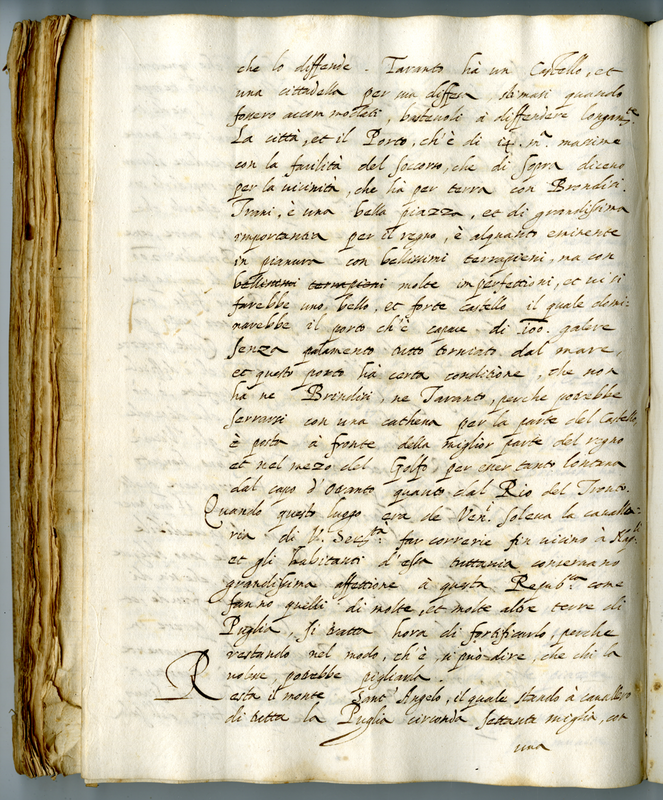 che lo diffende. Taranto hà un Castello, et
una cittadella per sua diffesa, stimati quando
fossero accommodati, bastevoli à diffendere longam.te
La città, et il Porto, ch'è di m.a massime
con la facilità del Soccorso, che di sopra dicemo
per la vicinità, che hà per terra con Brondisi.
Trani, è una bella piazza, et di grandissima
importantia per il regno, è alquanto eminente
in pianura con bellissimi terrapieni, ma con
bellissimi terrapieni molte imperfettioni, et vi si
farebbe uno, bello, et forte castello il quale domi-
narebbe il porto ch'è capace di 100. galere
senza palamento tutto torniato dal mare,
et questo porto hà certa conditione, che non
hà ne Brindisi, ne Taranto, perche potrebbe
serrarsi con una cathena per la parte del Castello,
è posta à fronte della miglior parte del regno
et nel mezo del Golfo per esser tanto lontana
dal capo d'Otranto quanto dal Rio del Tronto.
Quando questo luogo era de Ven.i soleva la cavalle-
ria di V. Ser.tà far correrie fin vicino à Nap.li
et gli habitanti d'essa tuttavia conservano
grandissima affettione à questa Repub.ca come
fanno quelli di molte, et molte altre terre di
Puglia, si tratta hora di fortificarlo, perche
restando nel modo, ch'è, si può dire, che chi la
volesse, potrebbe pigliarla.
Resta il monte Sant'Angelo, il quale stando à cavallero
di tutta la Puglia circonda settanta miglia, con
una